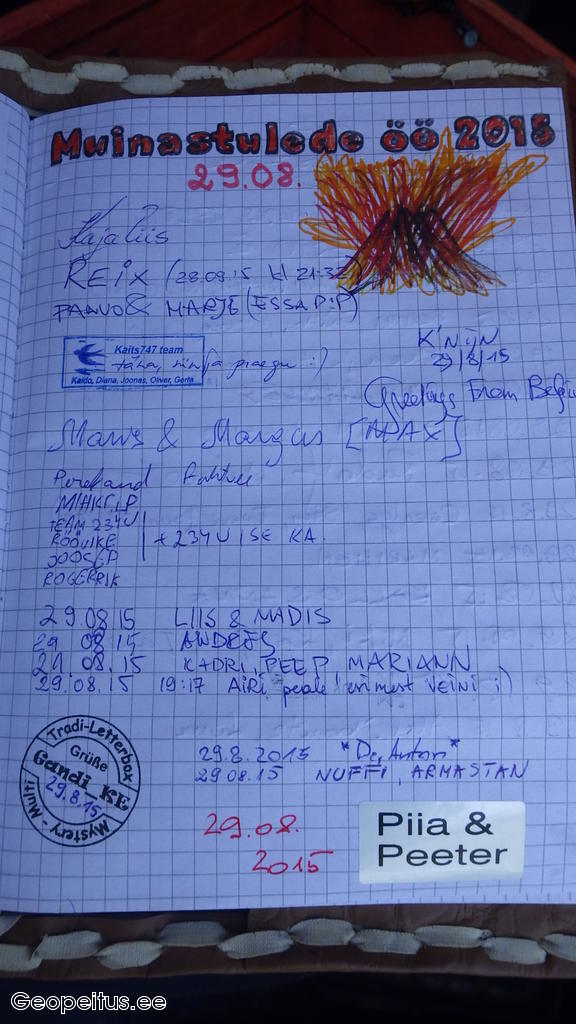 Muinastulede öö 2015
29.08.
Kajaliis
REIX (28.08.15 kl 21:32)
PAAVO & MARJE (ESSA P:P)
Kaits747 team
täna, siin ja praegu :)
Kaido, Diana, Joonas, Oliver, Gerta
K'NIJN
29/8/15
Greetings From Belgiu
& Margus [MAX]
Perekond
MIHKEL P
TEAM 234U
RÖÖVIKE
+ 234U ISE KA.
JOOSEP
ROGERRIK
29.08.15 LIIS & MADIS
29 08.15 ANDRES
29.08.15 KADRI, PEEP MARIANN
29.08.15 19:17 AIRI, peale erimest VEINI ;)
Tradi-Letterbox
Grüße
Gandi_KE
29.8.15
Mystery - Multi
29.8.2015
29 08.15 NUFFI, ARMASTAN
29.08.
2015
Piia &
Peeter
Geopeitus.ee